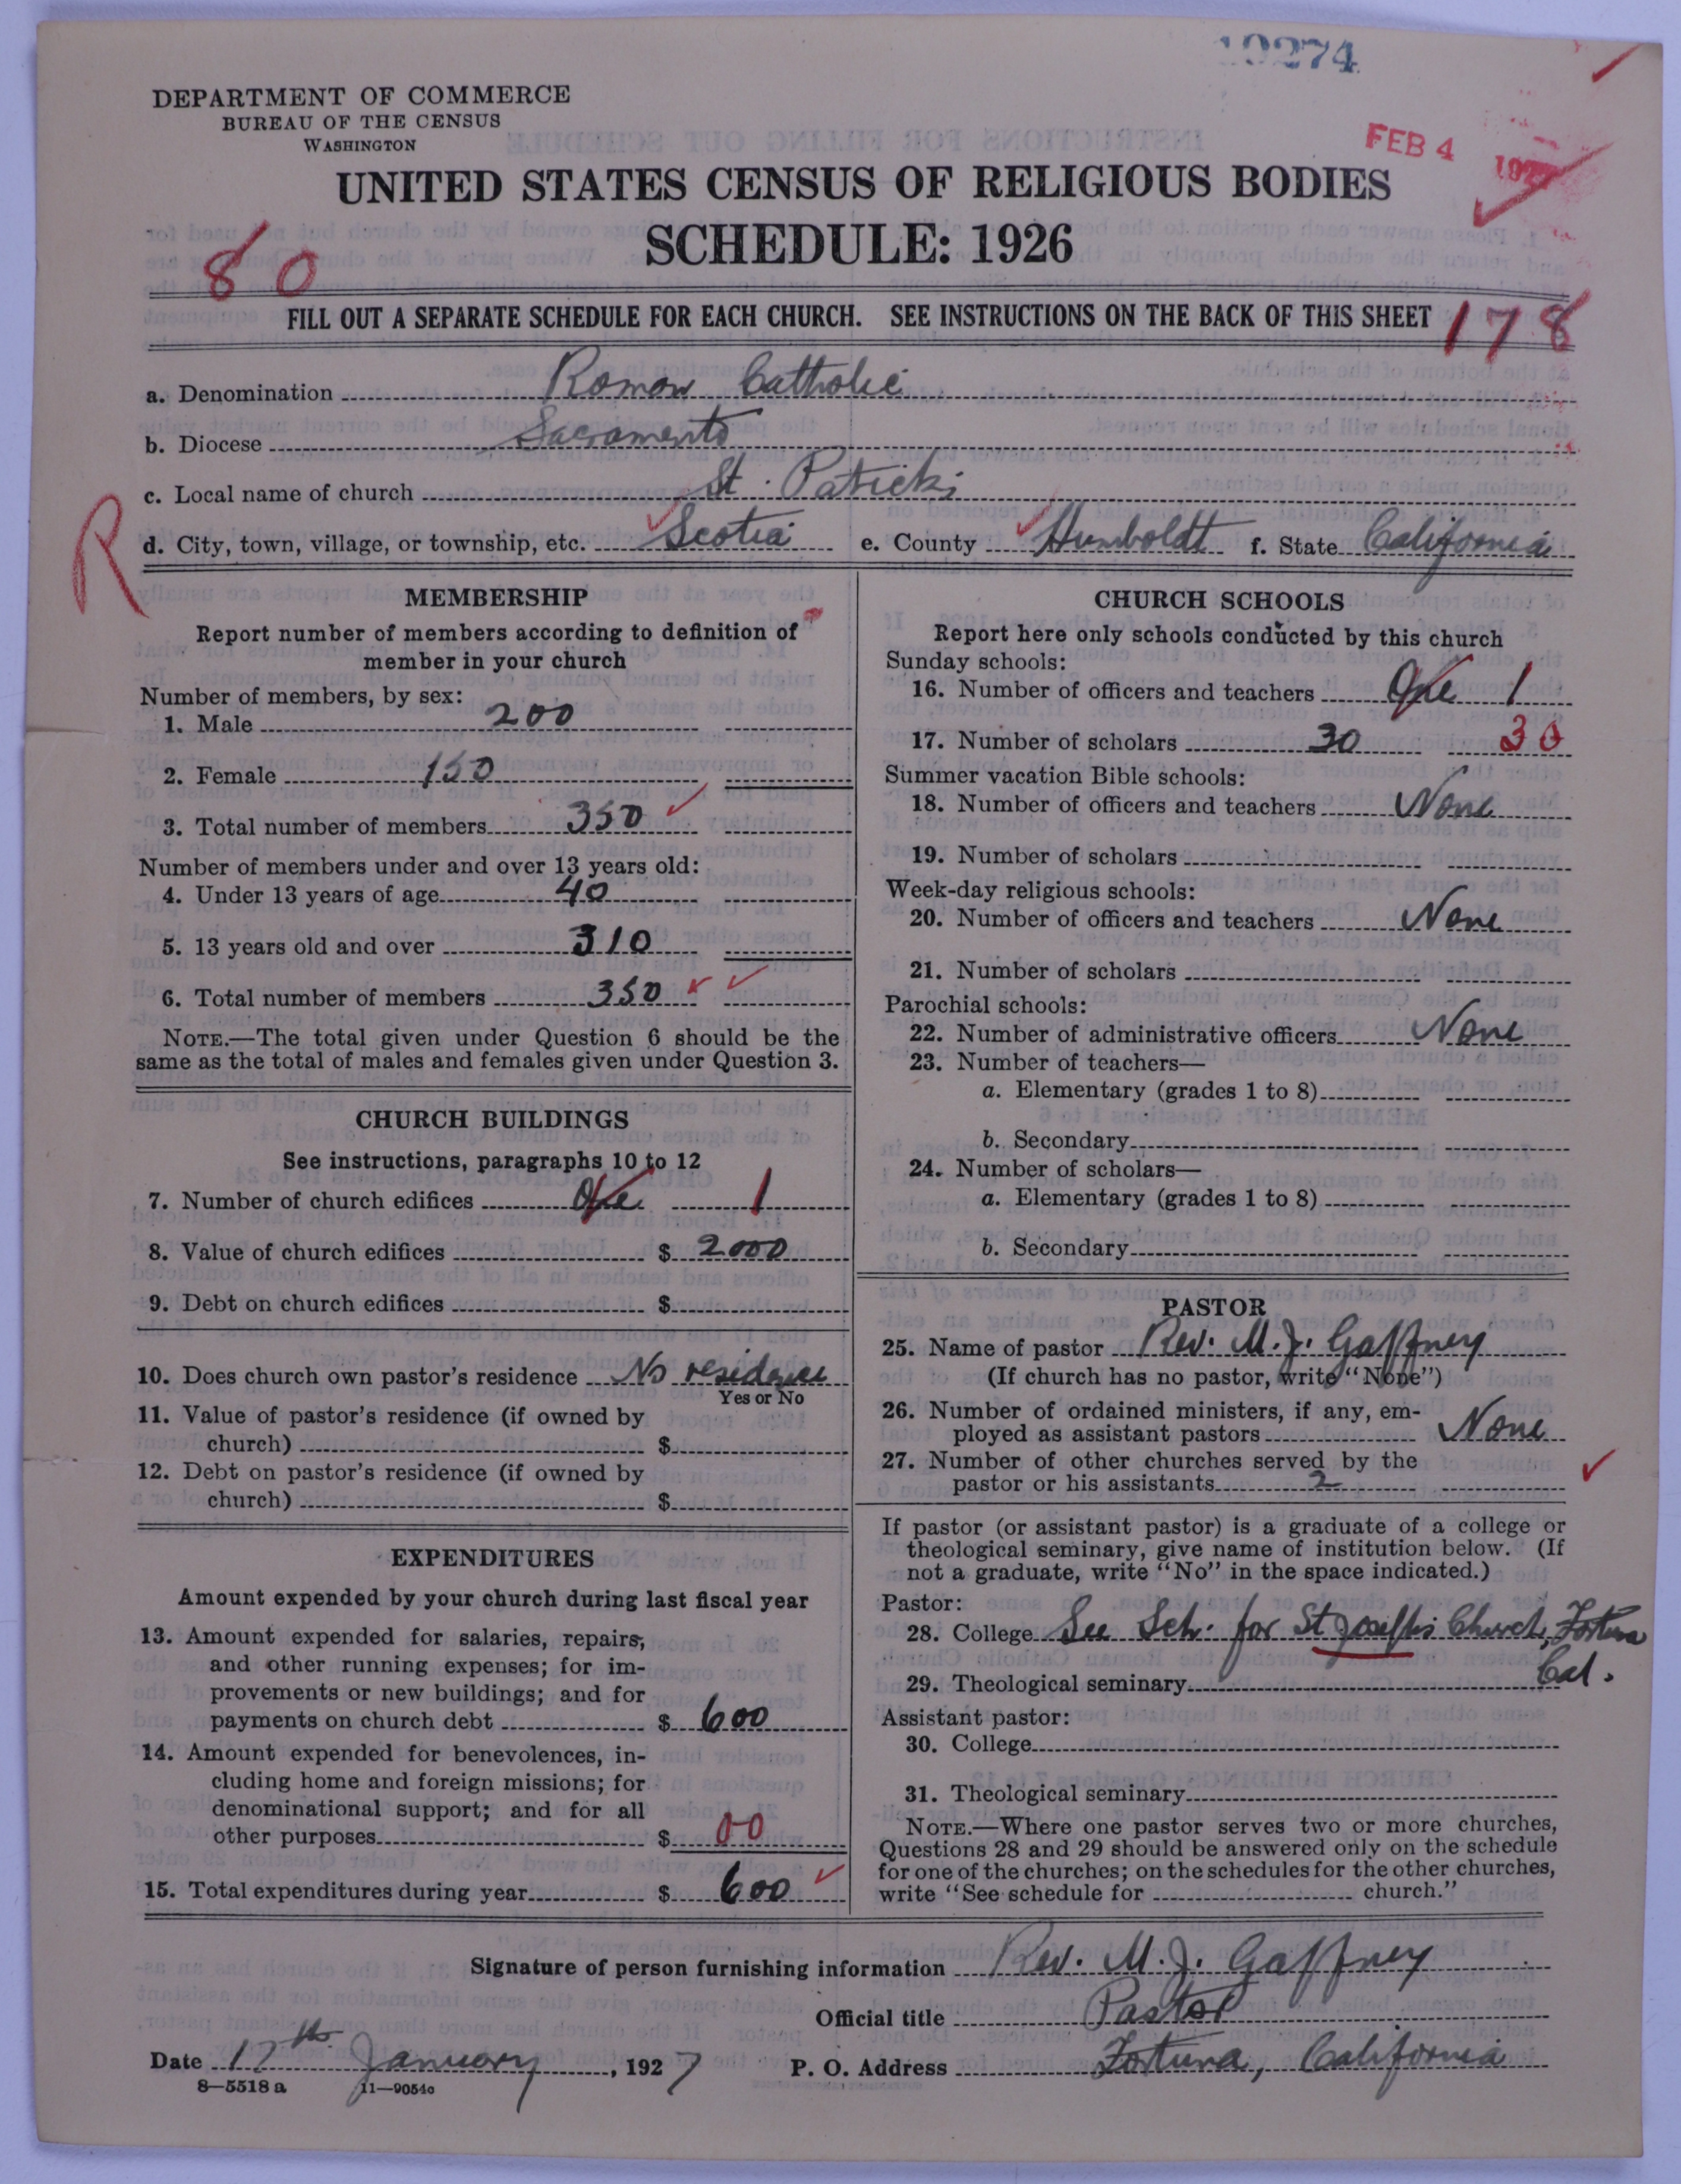 10274
DEPARTMENT OF COMMERCE
BUREAU OF THE CENSUS
WASHINGTON
FEB 4 1927
UNITED STATES CENSUS OF RELIGIOUS BODIES
SCHEDULE: 1926
80
FILL OUT A SEPARATE SCHEDULE FOR EACH CHURCH. SEE INSTRUCTIONS ON THE BACK OF THIS SHEET
178
a. Denomination Roman Catholic
b. Diocese Sacramento
c. Local name of church St. Patricks
R
d. City, town, village, or township, etc. Scotia e. County Humboldt f. State California
MEMBERSHIP
Report number of members according to definition of
member in your church
Number of members, by sex:
1. Male 200
2. Female 150
3. Total number of members 350
Number of members under and over 13 years old:
4. Under 13 years of age 40
5. 13 years old and over 310
6. Total number of members 350
NOTE.—The total given under Question 6 should be the
same as the total of males and females given under Question 3.
CHURCH BUILDINGS
See instructions, paragraphs 10 to 12
7. Number of church edifices One 1
8. Value of church edifices $ 2000
9. Debt on church edifices $
10. Does church own pastor's residence No residence
Yes or No
11. Value of pastor's residence (if owned by
church) $
12. Debt on pastor's residence (if owned by
church) $
EXPENDITURES
Amount expended by your church during last fiscal year
13. Amount expended for salaries, repairs,
and other running expenses; for im-
provements or new buildings; and for
payments on church debt $ 600
14. Amount expended for benevolences, in-
cluding home and foreign missions; for
denominational support; and for all
other purposes $ 00
15. Total expenditures during year $ 600
CHURCH SCHOOLS
Report here only schools conducted by this church
Sunday schools:
16. Number of officers and teachers One 1
17. Number of scholars 30 30
Summer vacation Bible schools:
18. Number of officers and teachers None
19. Number of scholars
Week-day religious schools:
20. Number of officers and teachers None
21. Number of scholars
Parochial schools:
22. Number of administrative officers None
23. Number of teachers—
a. Elementary (grades 1 to 8)
b. Secondary
24. Number of scholars—
a. Elementary (grades 1 to 8)
b. Secondary
PASTOR
25. Name of pastor Rev. M. J. Gaffney
(If church has no pastor, write "None")
26. Number of ordained ministers, if any, em-
ployed as assistant pastors None
27. Number of other churches served by the
pastor or his assistants 2
If pastor (or assistant pastor) is a graduate of a college or
theological seminary, give name of institution below. (If
not a graduate, write "No" in the space indicated.)
Pastor:
28. College See Sch. for St Joseph's Church, Fortuna
Cal.
29. Theological seminary
Assistant pastor:
30. College
31. Theological seminary
NOTE.—Where one pastor serves two or more churches,
Questions 28 and 29 should be answered only on the schedule
for one of the churches; on the schedules for the other churches,
write "See schedule for church."
Signature of person furnishing information Rev. M. J. Gaffney
Official title Pastor
Date 17th January, 1927 P. O. Address Fortuna, California
8—5518 a 11—9054c